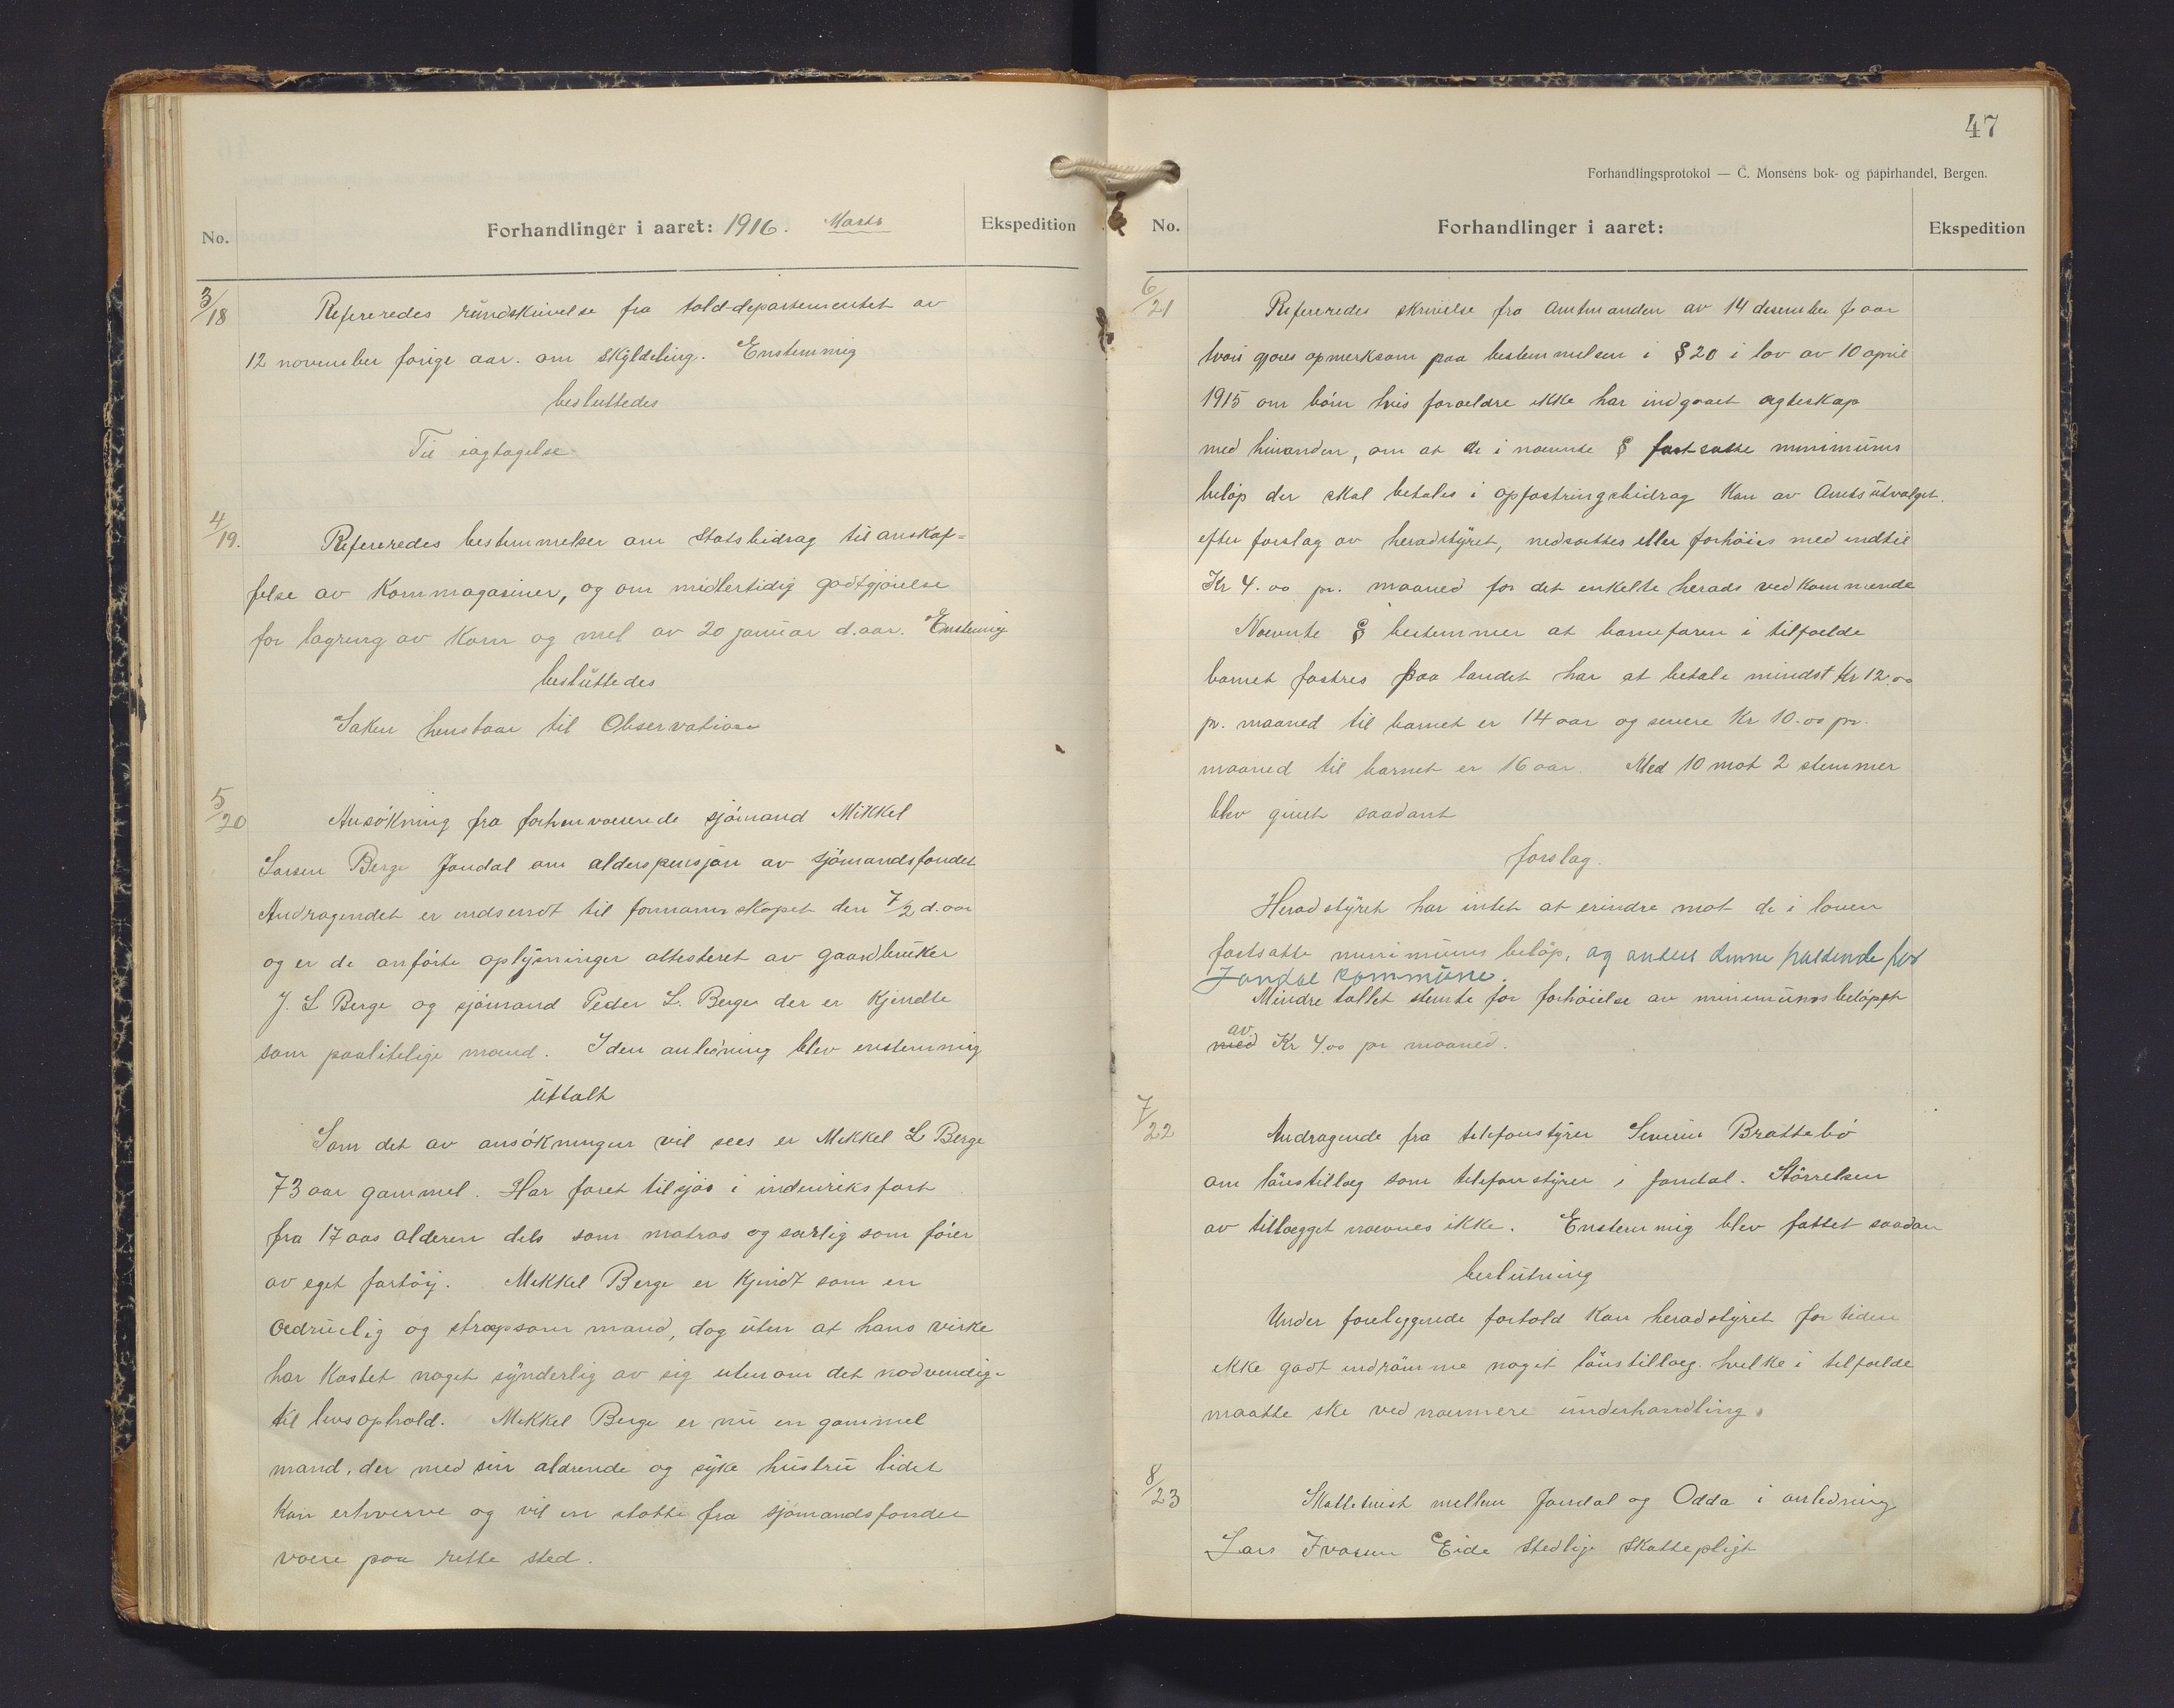 No.
Forhandlinger i aaret: 1916. Marts
Ekspedition
3/18
Refereredes rundskrivelse fra told-departementet av
12 november forige aar. om skyldeling. Enstemmig
besluttedes
Til iagtagelse
4/19.
Refereredes bestemmelser om Statsbidrag til anskaf=
felse av Kornmagasiner, og om midlertidig godtgjörelse
for lagring av Korn og mel av 20 januar d.aar. Enstemig
besluttedes
Saken henstaar til Observation
5/20
Ansökning fra forhenværende sjömand Mikkel
Larsen Berge Jondal om alderspensjon av sjömandsfondet
Andragendet er indsendt til formannskapet den 7/2 d.aar
og er de anförte oplysninger attesteret av gaardbruker
J. L Berge og sjömand Peder L. Berge der er Kjendte
som paalitelige mænd. I den anledning blev enstemmig
uttalt
Som det av ansökningen vil sees er Mikkel L Berge
73 aar gammel. Har faret tilsjøs i indenriksfart
fra 17 aas alderen dels som matros og særlig som förer
av eget fartöij. Mikkel Berge er Kjendt som en
ædruelig og stræpsom mand, dog uten at hans virke
har Kastet noget synderlig av sig utenom det nødvendige
til livsophold. Mikkel Berge er nu en gammel
mand, der med sin aldrende og syke hustru lidet
kan erhverve og vil en støtte fra sjömandsfondet
være paa rette sted.
47
Forhandlingsprotokol — C. Monsens bok- og papirhandel, Bergen.
No.
Forhandlinger i aaret:
Ekspedition
6/21
Refereredes skrivelse fra Amtmanden av 14 desember f. aar
hvori gjøres opmerksom paa bestemmelsen i § 20 i lov av 10 april
1915 om börn hvis forældre ikke har indgaaet ægteskap
med hinanden, om at de i nævnte § fastsatte minimums
belöp der skal betales i opfostringsbidrag Kan av Amtsutvalget,
efter forslag av heradstyret, nedsættes eller forhöies med indtil
Kr 4.00 pr. maaned for det enkelte herads vedkommende
Nævnte § bestemmer at barnefaren i tilfælde
barnet fostres paa landet har at betale mindst Kr 12.00
pr. maaned til barnet er 14 aar og senere Kr 10.00 pr.
maaned til barnet er 16 aar. Med 10 mot 2 stemmer
blev givet saadant
forslag.
Heradstyret har intet at erindre mot de i loven
fastsatte minimums belöp, og anser denne passende for
Jondal kommune.
Mindretallet stemte for forhöielse av minimumsbelöpet
av
med Kr 4.00 pr maaned.
7/22
Andragende fra telefonstyrer Severin Brattebö
om lönstillæg som telefonstyrer i Jondal. Störrelsen
av tillægget nævnes ikke. Enstemmig blev fattet saadan
beslutning
Under foreliggende forhold Kan heradstyret for tiden
ikke godt indrömme noget lönstillæg. hvilke i tilfælde
maatte ske ved nærmere underhandling.
8/23
Skattetvist mellem Jondal og Odda i anledning
Lars Ivarsen Eide stedlige skattepligt